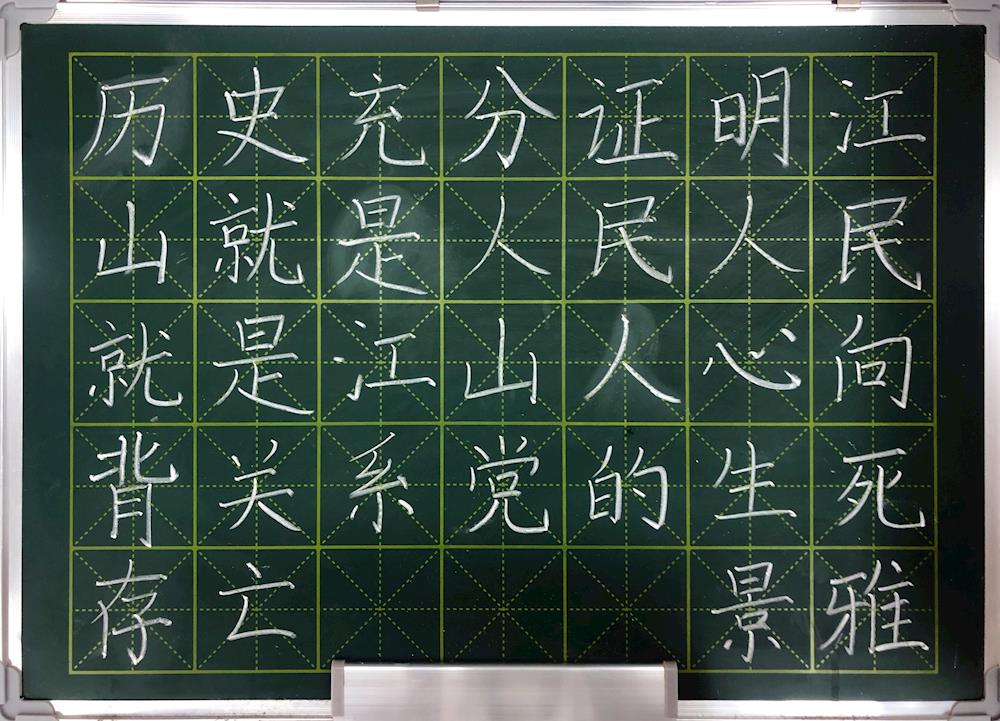 历史充分证明江
山就是人民人民
就是江山人心向
背关系党的生死
存亡 景雅